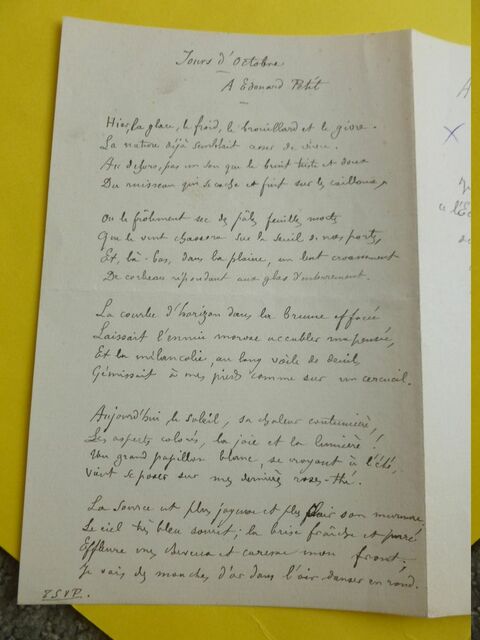 Jours d'Octobre
A Edouard Petit
Hier, la glace, le froid, le brouillard et le givre.
La nature déjà semblait cesser de vivre.
Au dehors, pas un son que le bruit triste et doux
Du ruisseau qui se cache et fuit sur les cailloux,
Ou le frôlement sec des pâles feuilles mortes
Que le vent chassera sur le seuil de nos portes,
Et, là-bas, dans la plaine, un lent croassement
De corbeau répondant aux glas d'enterrement.
La courbe d'horizon dans la brume effacée
Laissait l'ennui morose accabler ma pensée,
Et la mélancolie, au long voile de deuil,
Gémissait à mes pieds comme sur un cercueil.
Aujourd'hui le soleil, sa chaleur coutumière,
Les aspects colorés, la joie et la lumière !
Un grand papillon blanc, se croyant à l'été,
Vient se poser sur ma dernière rose-thé.
La source est plus joyeuse et plus clair son murmure,
Le ciel très bleu sourit ; la brise fraîche et pure
Effleure mes cheveux et caresse mon front.
Je vois des mouches d'or dans l'air danser en rond.
T.S.V.P.
A
X